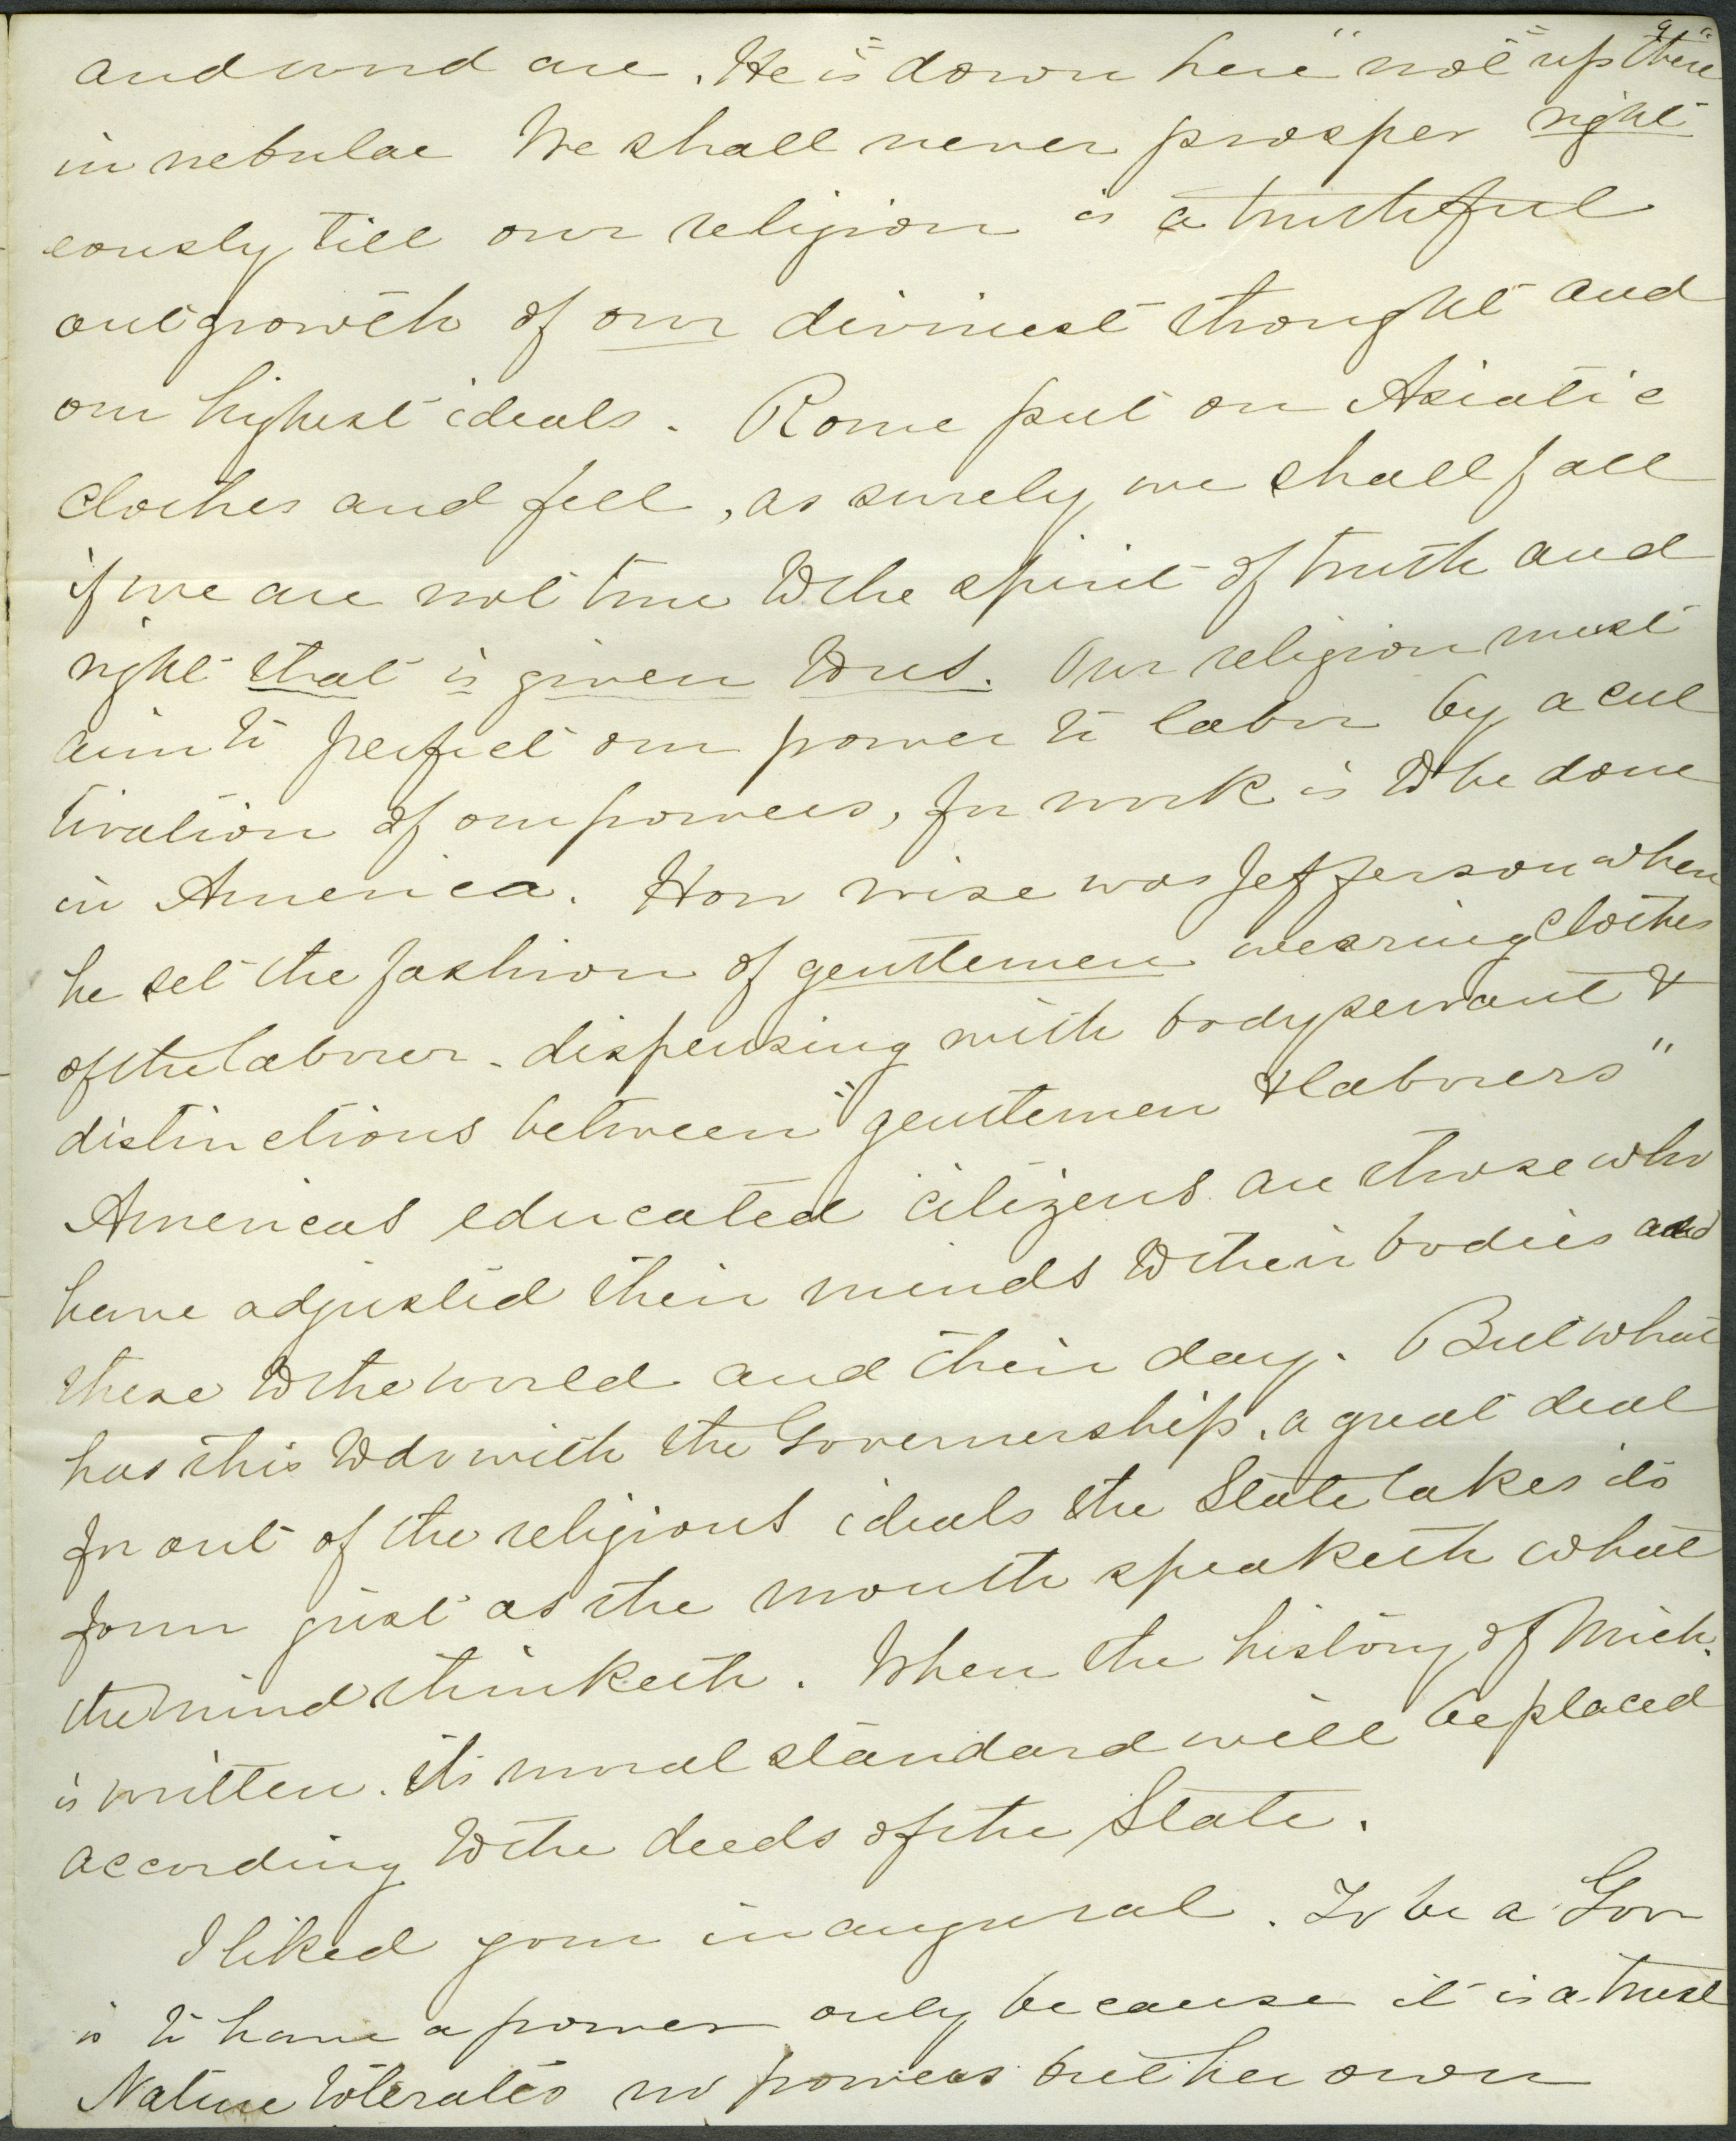 and wind are. He is "down here" not "up there"
in nebulae We shall never prosper right
eously till our religion is a truthful
outgrowth of our divinest thought and
our highest ideals. Rome put on Asiatic
clothes and fell, as surely we shall fall
if we are not true to the spirit of truth and
right that is given to us. Our religion must
aim to perfect our power to labor by a cul
tivation of our powers, for work is to be done
in America. How wise was Jefferson when
he set the fashion of gentlemen wearing clothes
of the laborer - dispensing with body servant &
distinctions between "gentlemen & laborers"
Americas educated citizens are those who
have adjusted their minds to their bodies and
these to the world and their day. But what
has this to do with the Governership, a great deal
for out of the religious ideals the State takes its
form just as the mouth speaketh what
the mind thinketh. When the history of Mich.
is written. its moral standard will be placed
according to the deeds of the State.
I liked your inaugural. To be a Gov
is to have a power only because it is a trust
Nature tolerates no powers but her own